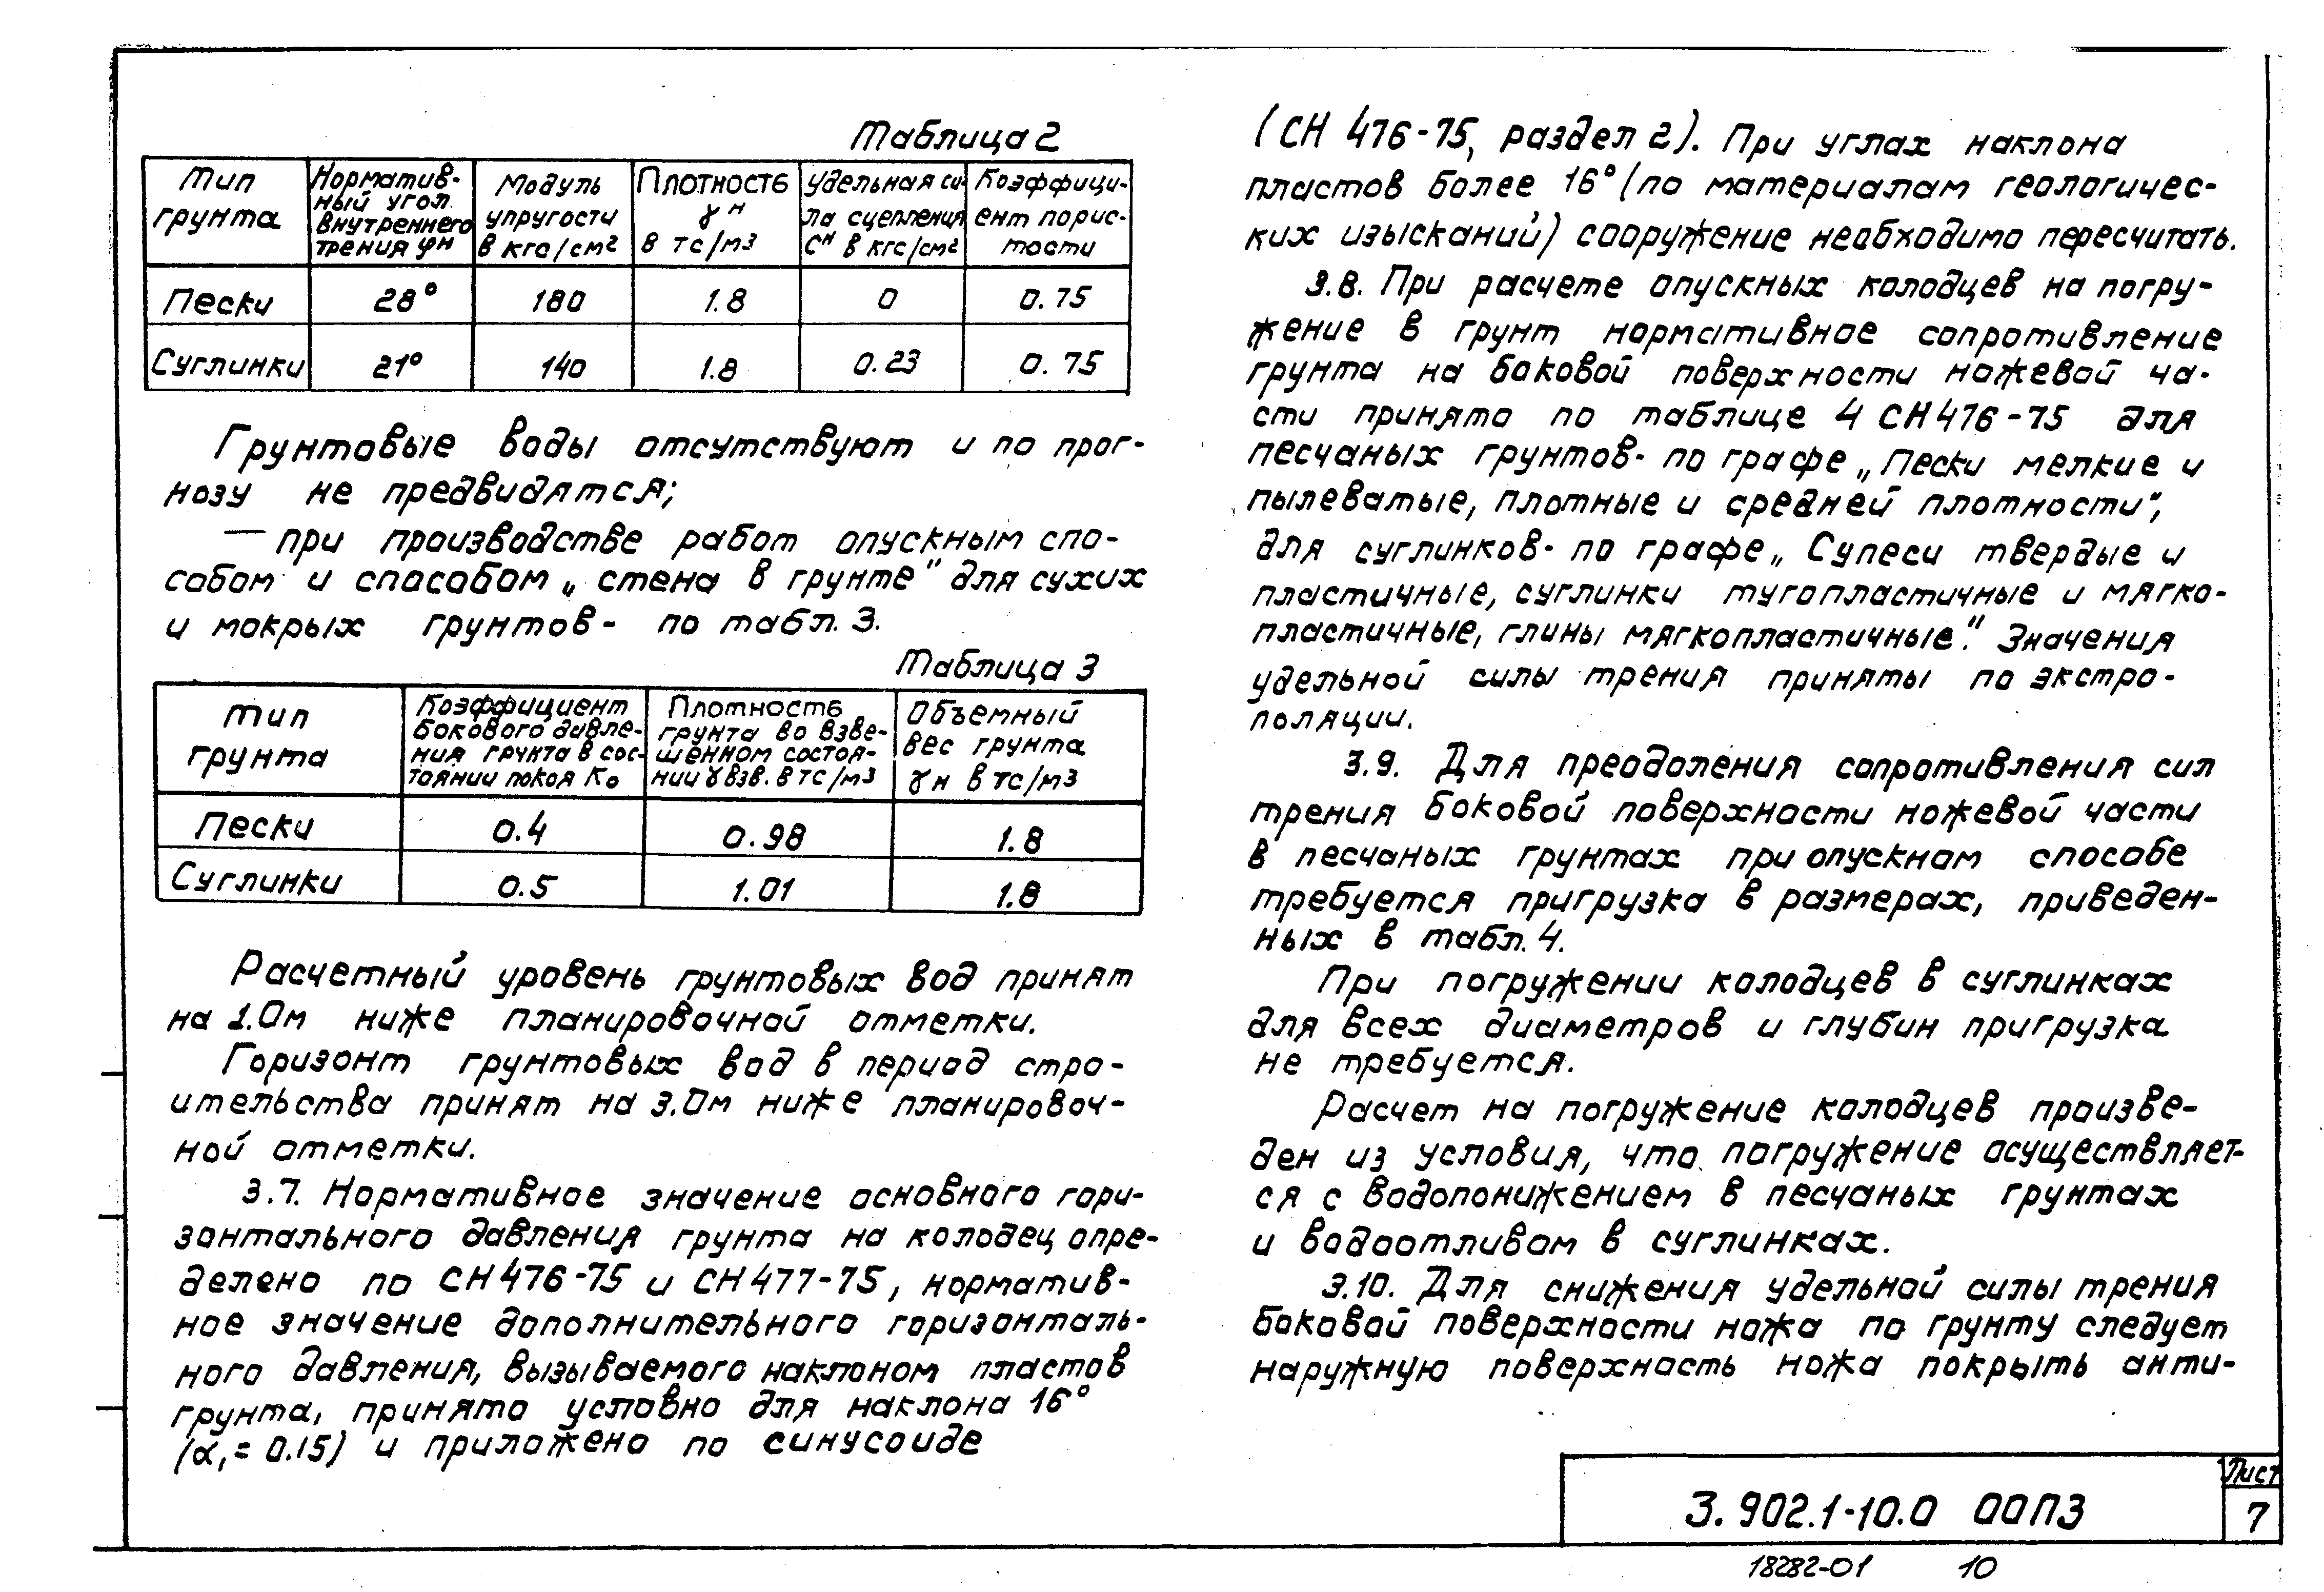 Таблица 2
Тип грунта | Норматив-ный угол внутреннего трения φн | Модуль упругости в кгс/см2 | Плотность γн в тс/м3 | Удельная си-ла сцепления Сн в кгс/см2 | Коэффици-ент порис-тости
Пески | 28° | 180 | 1.8 | 0 | 0.75
Суглинки | 21° | 140 | 1.8 | 0.23 | 0.75
Грунтовые воды отсутствуют и по прог-
нозу не предвидятся;
— при производстве работ опускным спо-
собом и способом „стена в грунте" для сухих
и мокрых грунтов - по табл. 3.
Таблица 3
Тип грунта | Коэффициент бокового давле-ния грунта в сос-тоянии покоя Ко | Плотность грунта во взве-шенном состоя-нии γ взв. в тс/м3 | Объемный вес грунта γн в тс/м3
Пески | 0.4 | 0.98 | 1.8
Суглинки | 0.5 | 1.01 | 1.8
Расчетный уровень грунтовых вод принят
на 1.0м ниже планировочной отметки.
Горизонт грунтовых вод в период стро-
ительства принят на 3.0м ниже планировоч-
ной отметки.
3.7. Нормативное значение основного гори-
зонтального давления грунта на колодец опре-
делено по СН 476-75 и СН 477-75, норматив-
ное значение дополнительного горизонталь-
ного давления, вызываемого наклоном пластов
грунта, принято условно для наклона 16°
(α1 = 0.15) и приложено по синусоиде
(СН 476-75, раздел 2). При углах наклона
пластов более 16° (по материалам геологичес-
ких изысканий) сооружение необходимо пересчитать.
3.8. При расчете опускных колодцев на погру-
жение в грунт нормативное сопротивление
грунта на боковой поверхности ножевой ча-
сти принято по таблице 4 СН 476-75 для
песчаных грунтов- по графе „Пески мелкие и
пылеватые, плотные и средней плотности",
для суглинков- по графе „Супеси твердые и
пластичные, суглинки тугопластичные и мягко-
пластичные, глины мягкопластичные." Значения
удельной силы трения приняты по экстро-
поляции.
3.9. Для преодоления сопротивления сил
трения боковой поверхности ножевой части
в песчаных грунтах при опускном способе
требуется пригрузка в размерах, приведен-
ных в табл. 4.
При погружении колодцев в суглинках
для всех диаметров и глубин пригрузка
не требуется.
Расчет на погружение колодцев произве-
ден из условия, что погружение осуществляет-
ся с водопонижением в песчаных грунтах
и водоотливом в суглинках.
3.10. Для снижения удельной силы трения
боковой поверхности ножа по грунту следует
наружную поверхность ножа покрыть анти-
3.902.1-10.0 00ПЗ
Лист
7
18282-01 10